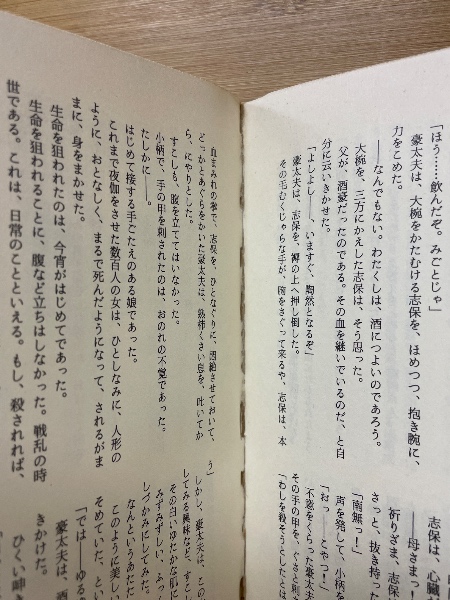 「ほう……飲んだぞ。みごとじゃ」
豪太夫は、大椀をかたむける志保を、ほめつつ、抱き腕に、
力をこめた。
――なんでもない。わたくしは、酒につよいのであろう。
大椀を、三方にかえした志保は、そう思った。
父が、酒豪だったのである。その血を継いでいるのだ、と自
分に云いきかせた。
「よしよし――、いますぐ、陶然となるぞ」
豪太夫は、志保を、褥の上へ押し倒した。
その毛むくじゃらな手が、腕をさぐって来るや、志保は、本
志保は、心臓
――母さまっ
祈りざま、志保
さっと、抜き持った
「南無っ！」
声を発して、小柄を
「おっ――こやつ！」
不意をくらった豪太夫
その手の甲を、ぐさと刺
「わしを殺そうとしたとは
血まみれの拳で、志保を、ひとなぐりに、悶絶させておいて、
どっかとあぐらをかいた豪太夫は、熟柿くさい息を、吐いてか
ら、にやりとした。
すこしも、腹を立ててはいなかった。
小柄で、手の甲を刺されたのは、おのれの不覚であった。
たしかに――。
はじめて接する手ごたえのある娘であった。
これまで夜伽をさせた数百人の女は、ひとしなみに、人形の
ように、おとなしく、まるで死んだようになって、されるがま
まに、身をまかせた。
生命を狙われたのは、今宵がはじめてであった。
生命を狙われることに、腹など立ちはしなかった。戦乱の時
世である。これは、日常のことといえる。もし、殺されれば、
う」
しかし、豪太夫は、この
してみる興味など、すこし
その白いゆたかな肌に
みずみずしい、ふっ
しづかみにしてみた。
なんというあたた
このように美し
そめていた、とい
「では――ゆる
豪太夫は、酒
きかけた。
ひくい呻き